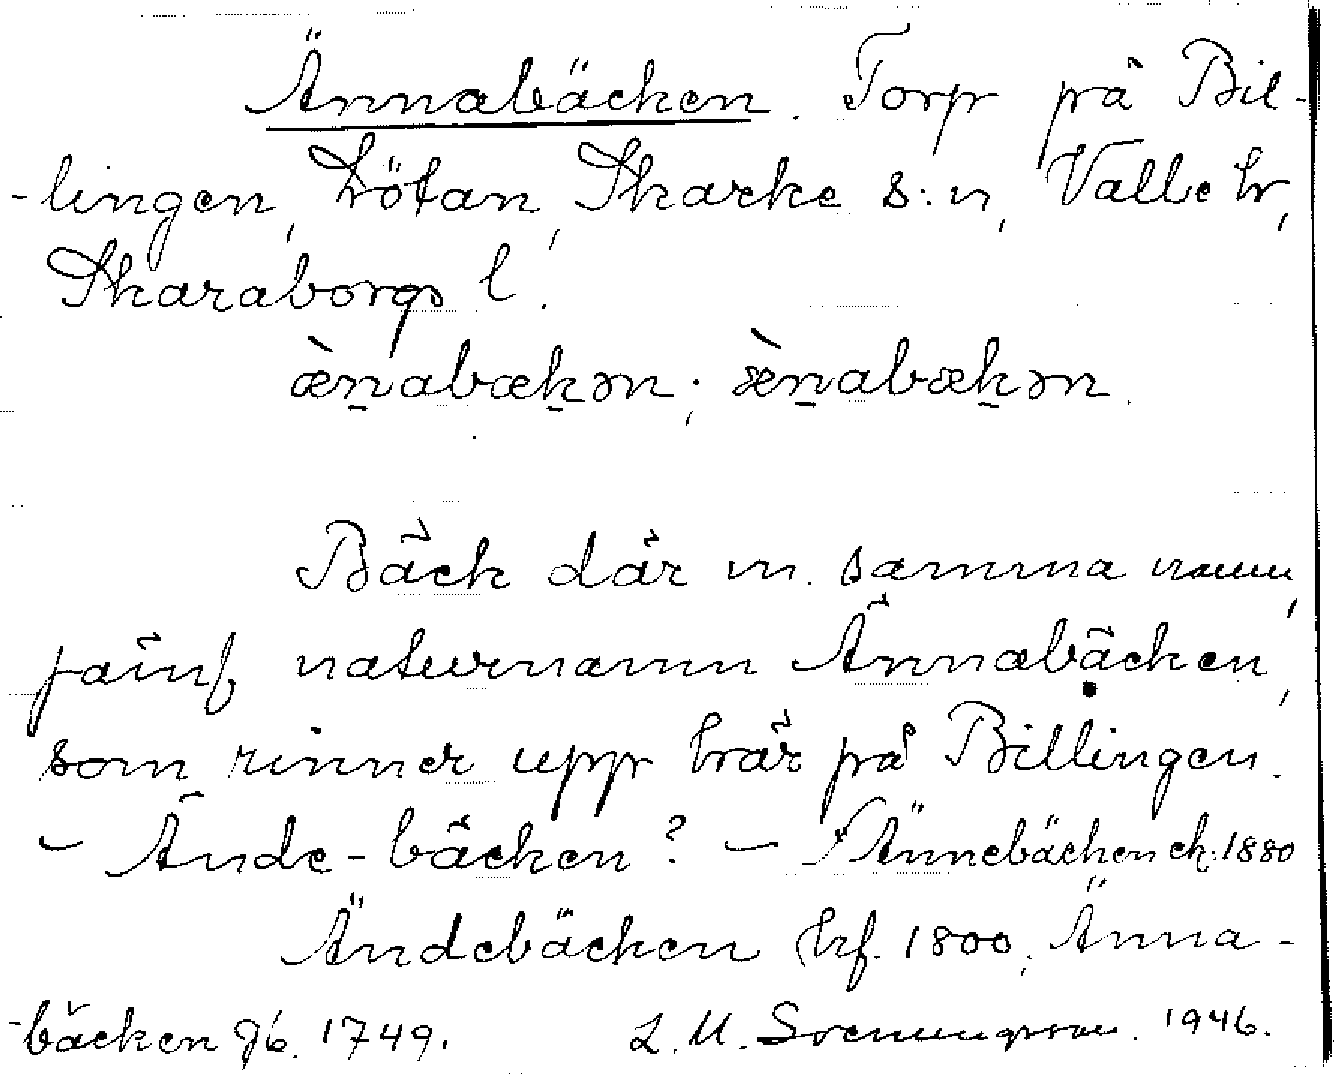 Ännabäcken. Torp på Bil-
-lingen, Lötan, Skarke s:n, Valle hr,
Skaraborgs l.
æ̀n̠abæk̠ən; æ̀n̠abæk̠ən.
Bäck där m. samma namn,
jämf. naturnamn Ännabäcken,
som rinner upp här på Billingen.
- Ände-bäcken? - Ännebäcken ek. 1880
Ändebäcken hf. 1800, Änna-
-bäcken Jb. 1749. L. M. Svenungsson. 1946.